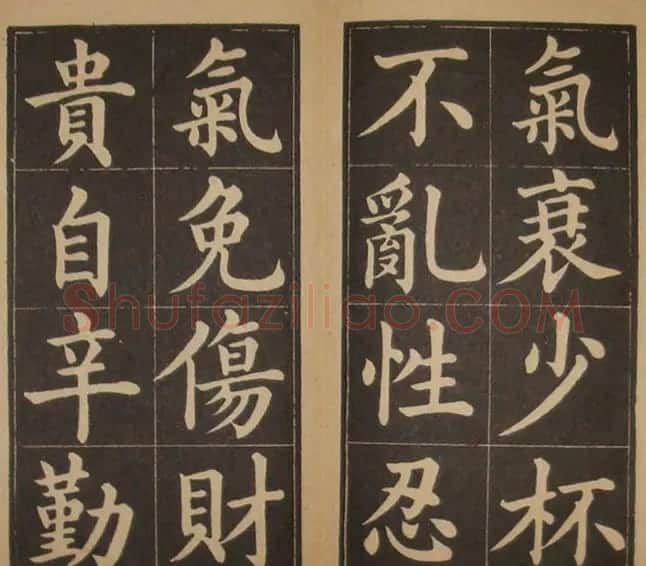 氣衰少杯
不亂性忍
氣免傷財
貴自辛勤
Shufaziliao.COM